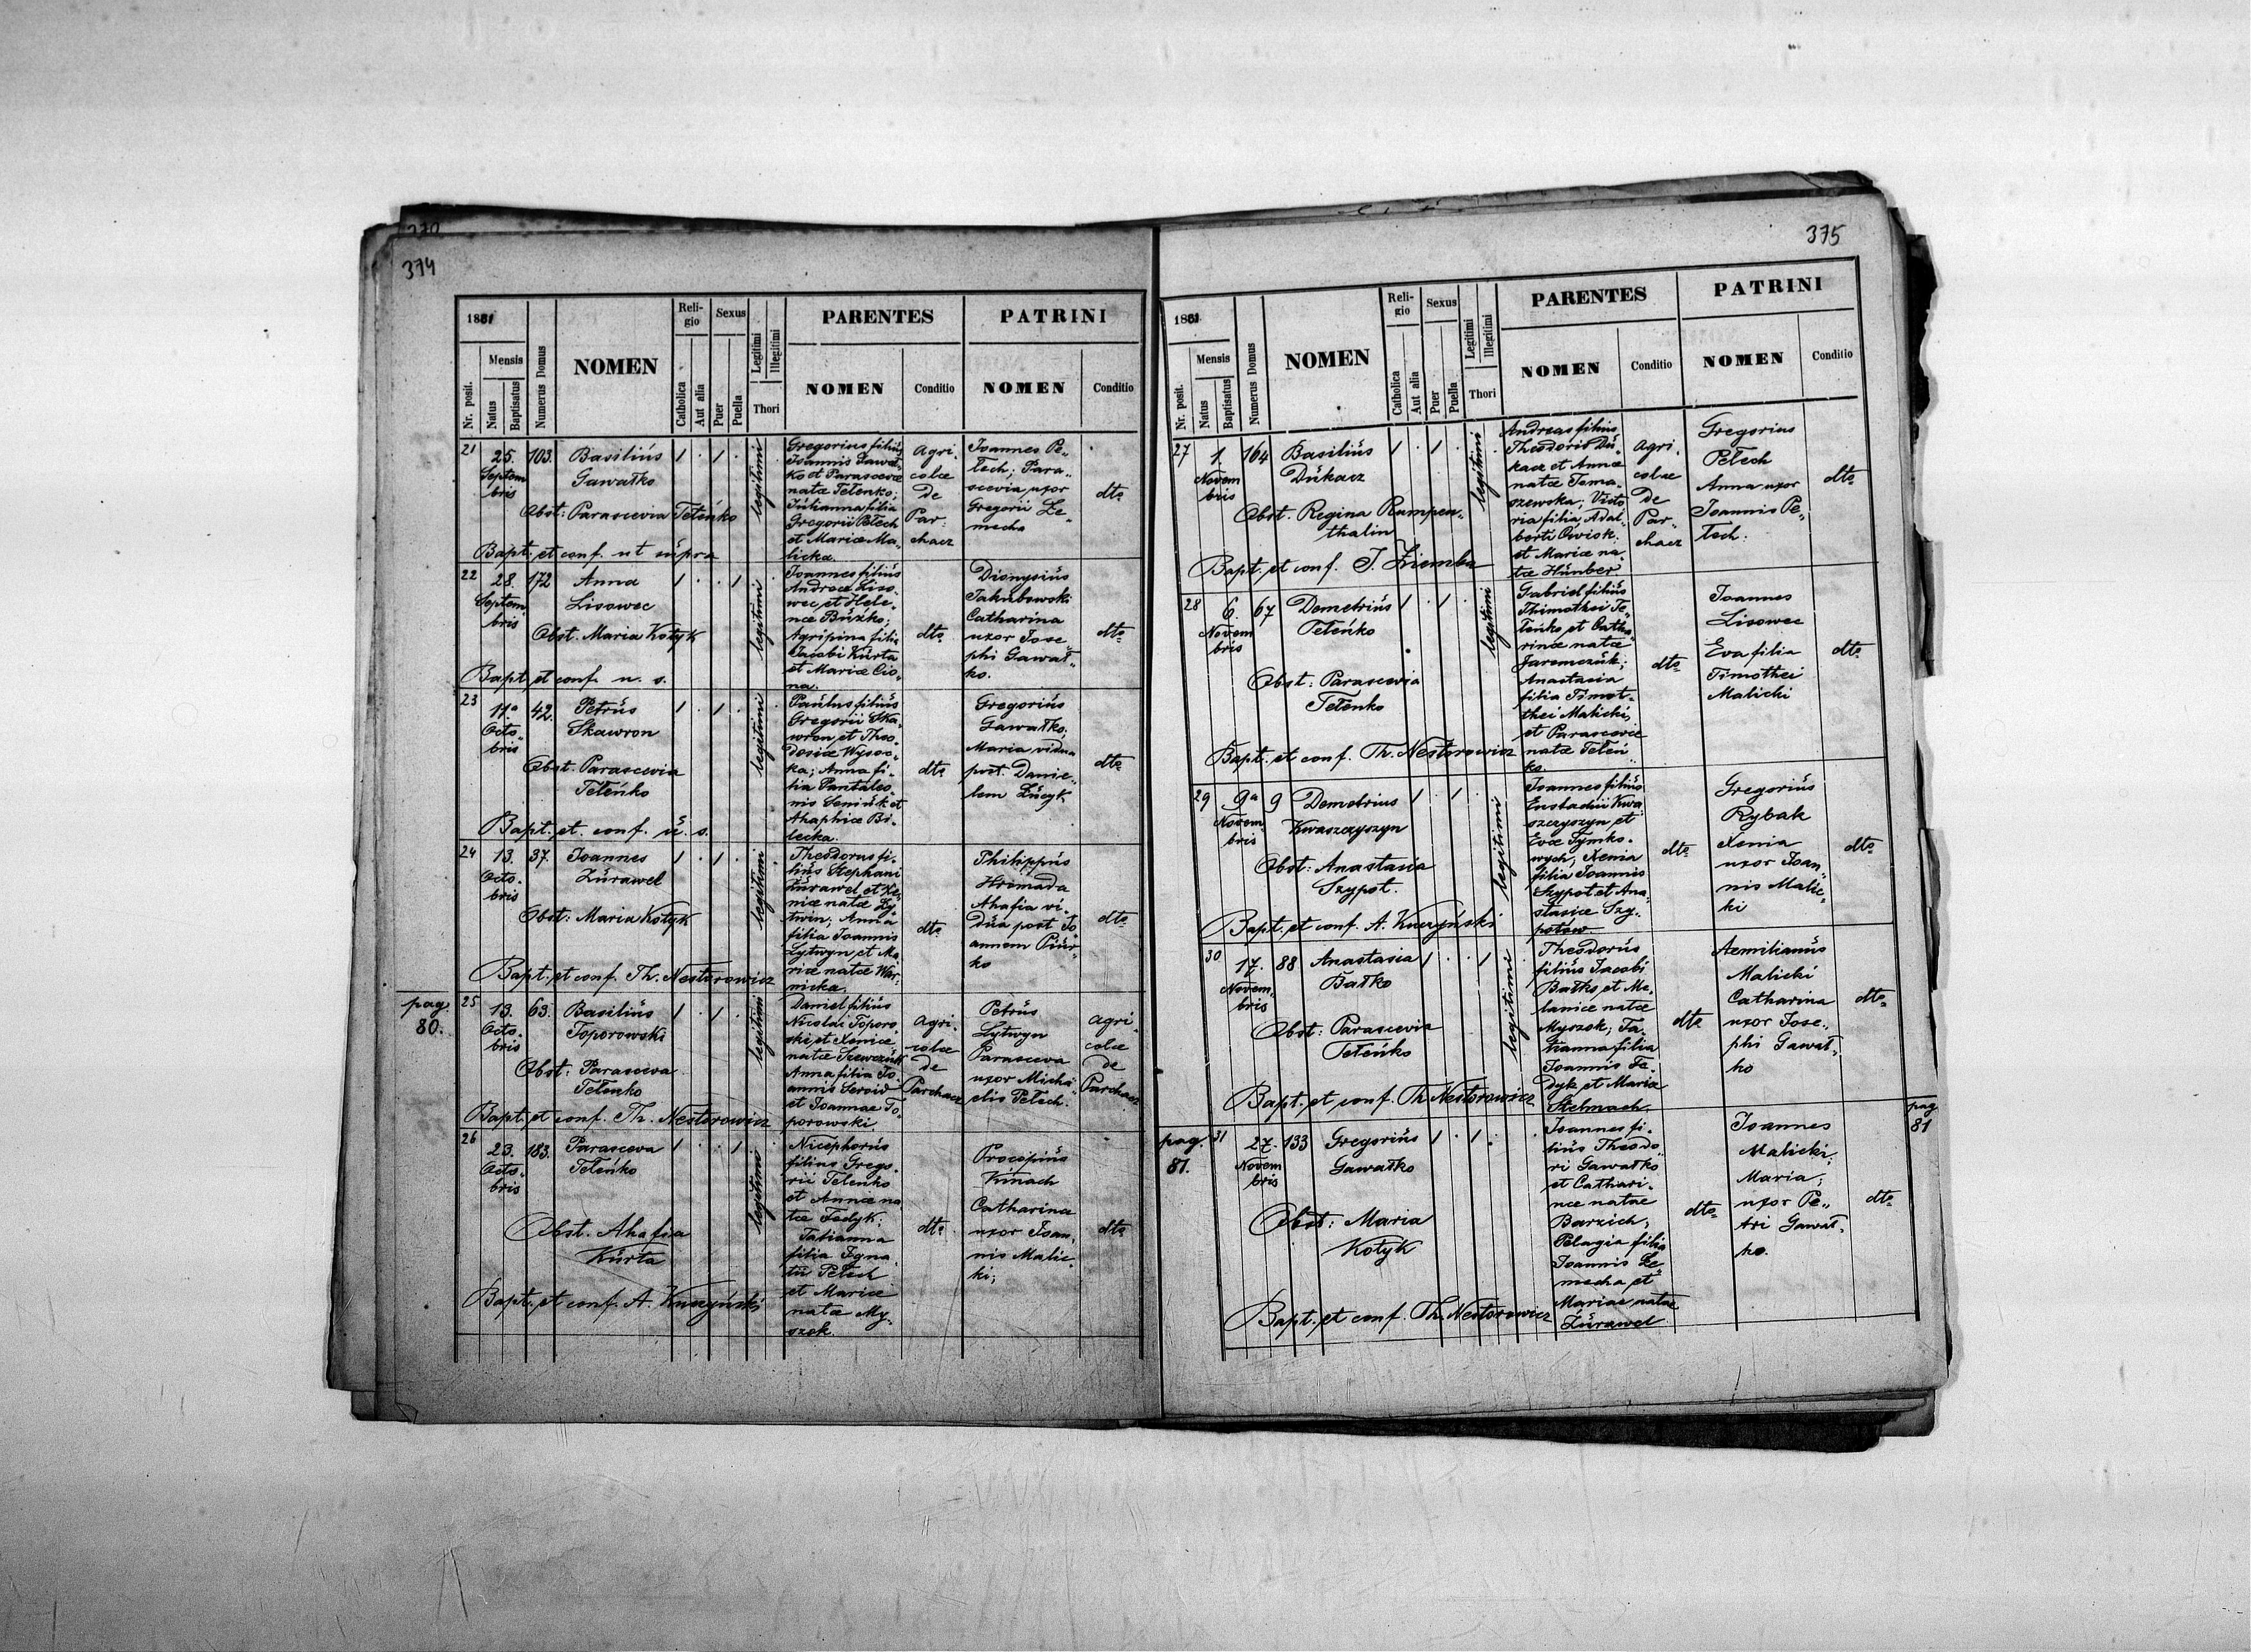 374
1881
Nr. posit.
Mensis
Natus
Baptisatus
Numerus Domus
NOMEN
Reli-
gio
Catholica
Aut alia
Sexus
Puer
Puella
Legitimi
Illegitimi
Thori
PARENTES
NOMEN
Conditio
PATRINI
NOMEN
Conditio
21
25.
Septem
bris
103.
Basiliŭs
Gawałko
Obst: Parascevia Teleńko
Bapt. et conf. ut sŭpra
legitimi
Gregorius filiŭs
Joannis Gawał-
ko et Parascevæ
natæ Telenko;
Jŭlianna filia
Gregorii Pełech
et Mariæ Ma-
licka.
Agri-
colæ
de
Par-
chacz
Joannes Pe-
łech; Para-
scevia uxor
Gregorii Le-
mecha
dto
22
28.
Septem
bris
172
Anna
Lisowec
Obst. Maria Kotyk
Bapt. et conf. u. s.
legitimi
Joannes filiŭs
Andreæ Liso-
wec, et Hele-
næ Bŭżko;
Agripina filia
Jacobi Kŭrta
et Mariæ Cio-
na.
dto
Dionysiŭs
Jakubowski
Catharina
uxor Jose
phi Gawał-
ko.
dto
23
11a
Octo-
bris
42.
Petrŭs
Skawron
Obst. Parascevia
Teleńko
Bapt. et. conf. ŭ. s.
legitimi
Paŭlus filiŭs
Gregorii Ska-
wron et Theo-
dosiæ Wysoc-
ka; Anna fi-
lia Pantaleo
nis Seniŭk et
Ahaphiæ Bi-
lecka.
dto
Gregoriŭs
Gawałko,
Maria vidua
post. Danie-
lem Łŭcyk
dto
24
13.
Octo-
bris
37.
Joannes
Żŭrawel
Obst: Maria Kotyk
Bapt. et conf. Th. Nestorowicz
legitimi
Theodorus fi-
liŭs Stephani
Żŭrawel et Xe-
niæ natæ Ly-
twin; Anna
filia Joannis
Lytwyn et Ma
riæ natæ War-
nicka.
dto
Philippŭs
Hromada
Ahafia vi-
dŭa post Jo
annem Piŭr-
ko
dto
pag.
80.
25
13.
Octo-
bris
63.
Basiliŭs
Toporowski
Obst: Parasceva
Telenko
Bapt. et conf. Th. Nestorowicz
legitimi
Daniel filiŭs
Nicolai Toporo-
ski et Xeniæ
natæ Szewczŭk
Anna filia Jo
annis Seroid
et Joannae To-
porowski.
Agri-
colæ
de
Parchacz
Petrŭs
Lytwyn
Parasceva
uxor Micha-
elis Pełech.
agri-
colæ
de
Parchacz
26
23.
Octo-
bris
183.
Parasceva
Teleńko
Obst. Ahafia
Kŭrta
Bapt. et conf. A. Kuczyński
legitimi
Nicephorŭs
filius Grego-
rii Teleńko
et Annæ na
tæ Fedyk;
Tatianna
filia Igna-
tii Pełech
et Mariæ
natæ My-
szok.
dto
Procopiŭs
Kinach
Catharina
uxor Joan-
nis Malic-
ki;
dto
375
1881
Nr. posit.
Mensis
Natus
Baptisatus
Numerus Domus
NOMEN
Reli-
gio
Catholica
Aut alia
Sexus
Puer
Puella
Legitimi
Illegitimi
Thori
PARENTES
NOMEN
Conditio
PATRINI
NOMEN
Conditio
27
1
Novem
bris
164
Basiliŭs
Dŭkacz
Obst. Regina Rumpen-
thalin
Bapt. et conf. J. Ziemba
legitimi
Andreas filius
Theodorii Dŭ-
kacz et Annæ
natæ Toma-
szewska; Victo
ria filia Adal-
berti Cwiok
et Mariæ na-
tæ Hŭnber
Agri-
colæ
de
Par-
chacz
Gregorius
Pełech
Anna uxor
Joannis Pe-
łech.
dto
28
6.
Novem
bris
67
Demetriŭs
Teleńko
Obst: Parascevia
Telenko
Bapt. et conf. Th. Nestorowicz
legitimi
Gabriel filiŭs
Thimothei Te-
leńko et Catha
rinæ natæ
Jaremczŭk;
Anastasia
filia Timot-
thei Malicki,
et Parasceviæ
natæ Teleń-
ko.
dto
Joannes
Lisowec
Eva filia
Timothei
Malicki
dto
29
9a
Novem-
bris
9
Demetrius
Kwaszczyszyn
Obst: Anastasia
Szypot.
Bapt. et conf. A. Kuczyński
legitimi
Joannes filiŭs
Eustachii Kwa
szczyszyn et
Evæ Tymko-
wych, Xenia
filia Joannis
Szypot et Ana-
stasiæ Szy-
potow
dto
Gregoriŭs
Rybak
Xenia
uxor Joan-
nis Malic-
ki
dto
30
17.
Novem-
bris
88
Anastasia
Bałko
Obst: Parascevia
Teleńko
Bapt. et conf. Th Nestorowicz
legitimi
Theodorŭs
filiŭs Jacobi
Bałko, et Me-
laniæ natæ
Myszok; Ta-
tianna filia
Joannis Fe-
dyk et Mariæ
Stelmach.
dto
Aemilianŭs
Malicki
Catharina
uxor Jose-
phi Gawał-
ko
dto
pag.
81.
31
27.
Novem
bris
133
Gregoriŭs
Gawałko
Obst: Maria
Kotyk
Bapt. et conf. Th. Nestorowicz
Joannes fi-
liŭs Theodo-
ri Gawałko
et Cathari-
næ natae
Barzich;
Pelagia filia
Joannis Le-
mecha et
Mariae natæ
Żŭrawel
dto
Joannes
Malicki;
Maria;
uxor Pe-
tri Gawał-
ko.
dto
pag
81